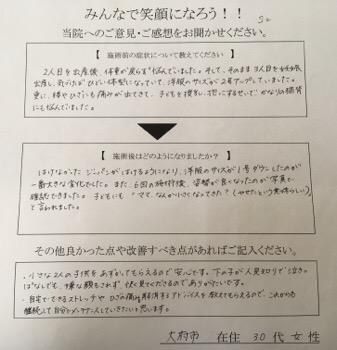 みんなで笑顔になろう!!
当院へのご意見・ご感想をお聞かせください。
【 施術前の症状について教えてください 】
2人目を出産後、体重が戻らず悩んでいました。そして、そのまま3人目を妊娠
出産し、洋服のサイズが2号アップしていました。
更に、腰やひざにも痛みが出てきて、子どもを抱き
にも悩んでいました。
【 施術後はどのようになりましたか? 】
はけなかった ジーパンがはけるようになり、洋服のサイズが1号ダウンしたのが
一番大きな変化でした。また、6回の施術後、姿勢が良くなったのが写真で
確認できました。子どもにも"ママ、なんか小さくなってきた"(やせたという
と言われました。
その他良かった点や改善すべき点があればご記入ください。
・小さな2人の子供をあずかしてもらえるので安心です。下の子が人見知りで泣きっ
ぱなしでも、嫌な顔もされず、快く見てくださるのでありがたいです。
・自宅でできるストレッチやひざの痛み解消するアドバイスを教えてもらえるので、これからも
継続して自分をメンテナンスしていきたいと思います。
大府市 在住 30代 女性